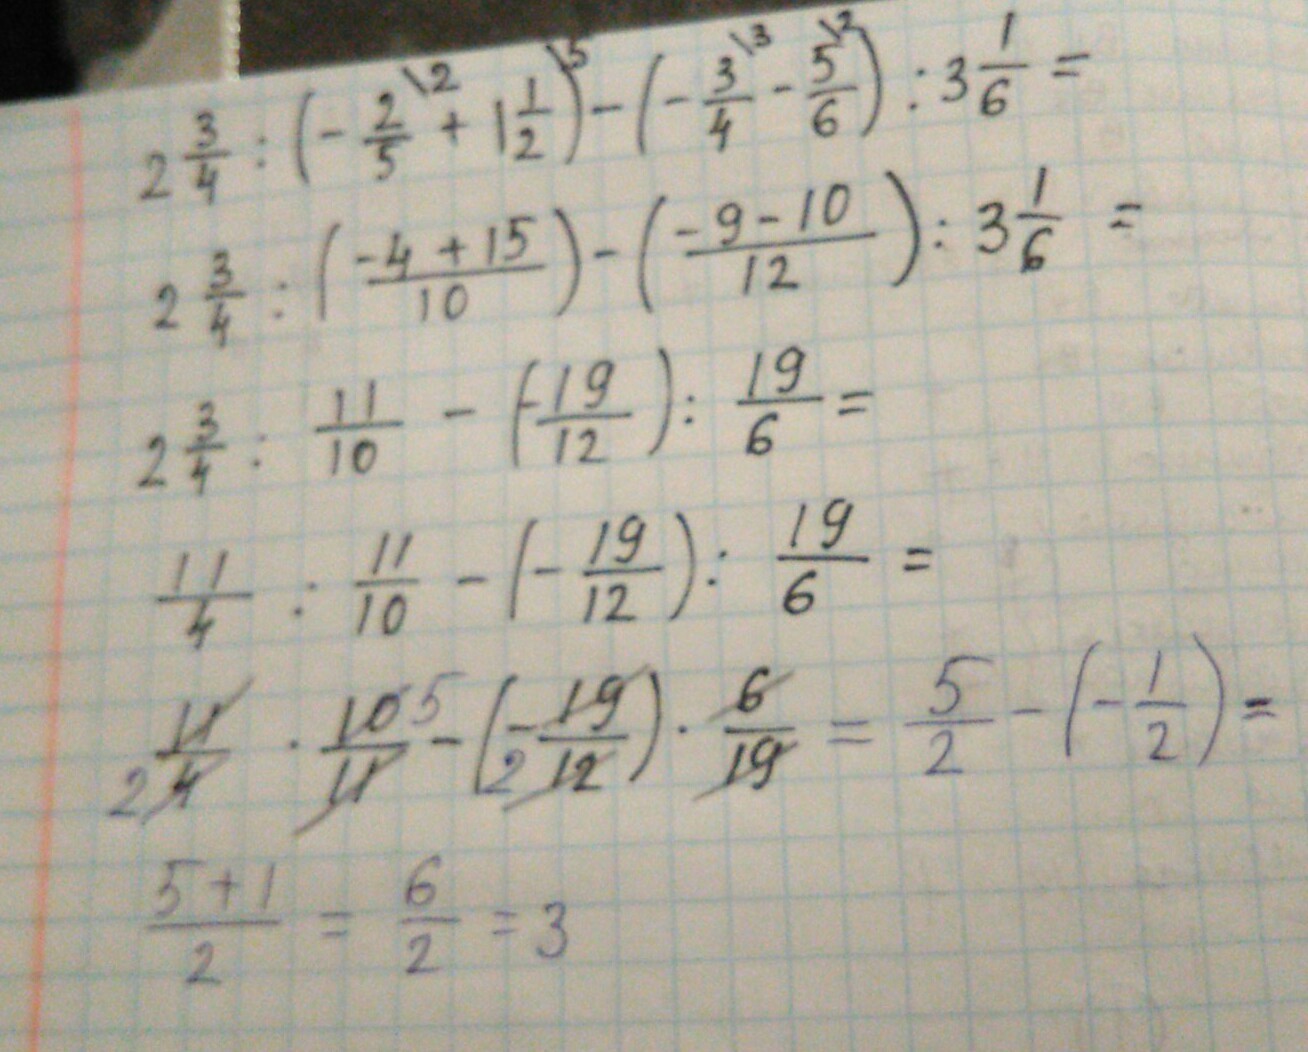 2 3/4 : (- 2/5 \2 + 1 1/2 \5) - (- 3/4 \3 - 5/6 \2) : 3 1/6 =
2 3/4 : ((-4+15)/10) - ((-9-10)/12) : 3 1/6 =
2 3/4 : 11/10 - (-19/12) : 19/6 =
11/4 : 11/10 - (-19/12) : 19/6 =
2 11/4 · 10/11 5 - (-2 19/12) · 6/19 = 5/2 - (-1/2) =
(5+1)/2 = 6/2 = 3